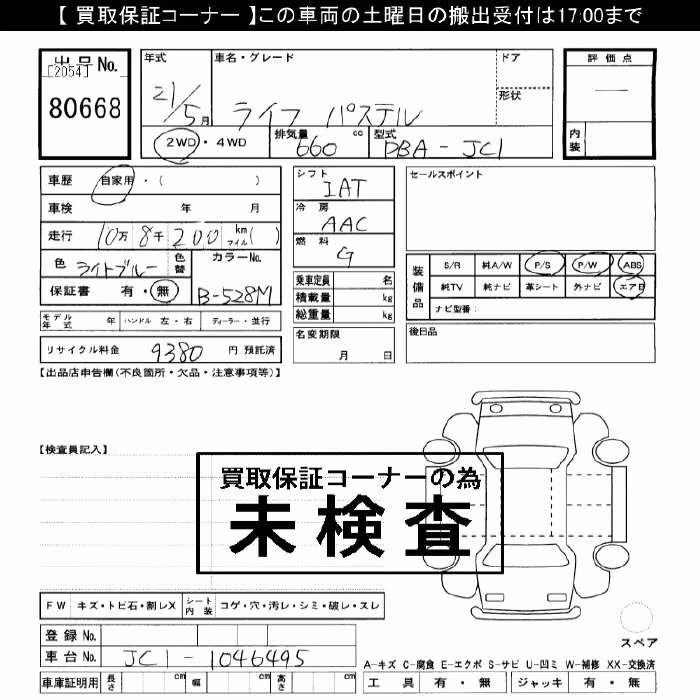 【 買取保証コーナー 】この車両の土曜日の搬出受付は17:00まで
出品No.
[2054]
80668
年式
21/5月
車名・グレード
ライフ パステル
ドア
形状
2WD・4WD
排気量
660 cc
型式
DBA-JC1
評価点
―
内装
車歴 自家用・( )
車検 年 月
走行 10万 8千 200 km マイル( )
色 ライトブルー
色替
カラーNo.
B-528M
保証書 有・無
モデル年式 年
ハンドル 左・右
ディーラー・並行
リサイクル料金 9380 円 預託済
シフト
IAT
冷房
AAC
燃料
G
乗車定員 名
積載量 kg
総重量 kg
名変期限
月 日
セールスポイント
装備品
S/R 純A/W P/S P/W ABS
純TV 純ナビ 革シート 外ナビ エアB
ナビ型番:
後日品
【出品店申告欄(不良箇所・欠品・注意事項等)】
【検査員記入】
買取保証コーナーの為
未検査
FW キズ・トビ石・割レX
シート内装 コゲ・穴・汚レ・シミ・破レ・スレ
登録No.
車台No. JC1-1046495
車庫証明用 長さ cm 幅 cm 高さ cm
スペア
A-キズ C-腐食 E-エクボ S-サビ U-凹ミ W-補修 XX-交換済
工具 有・無 ジャッキ 有・無